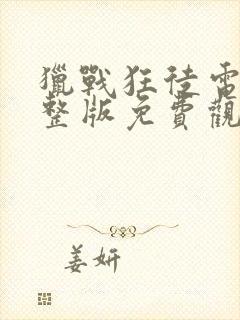 獵戰狂徒電
整版免費觀
姜妍